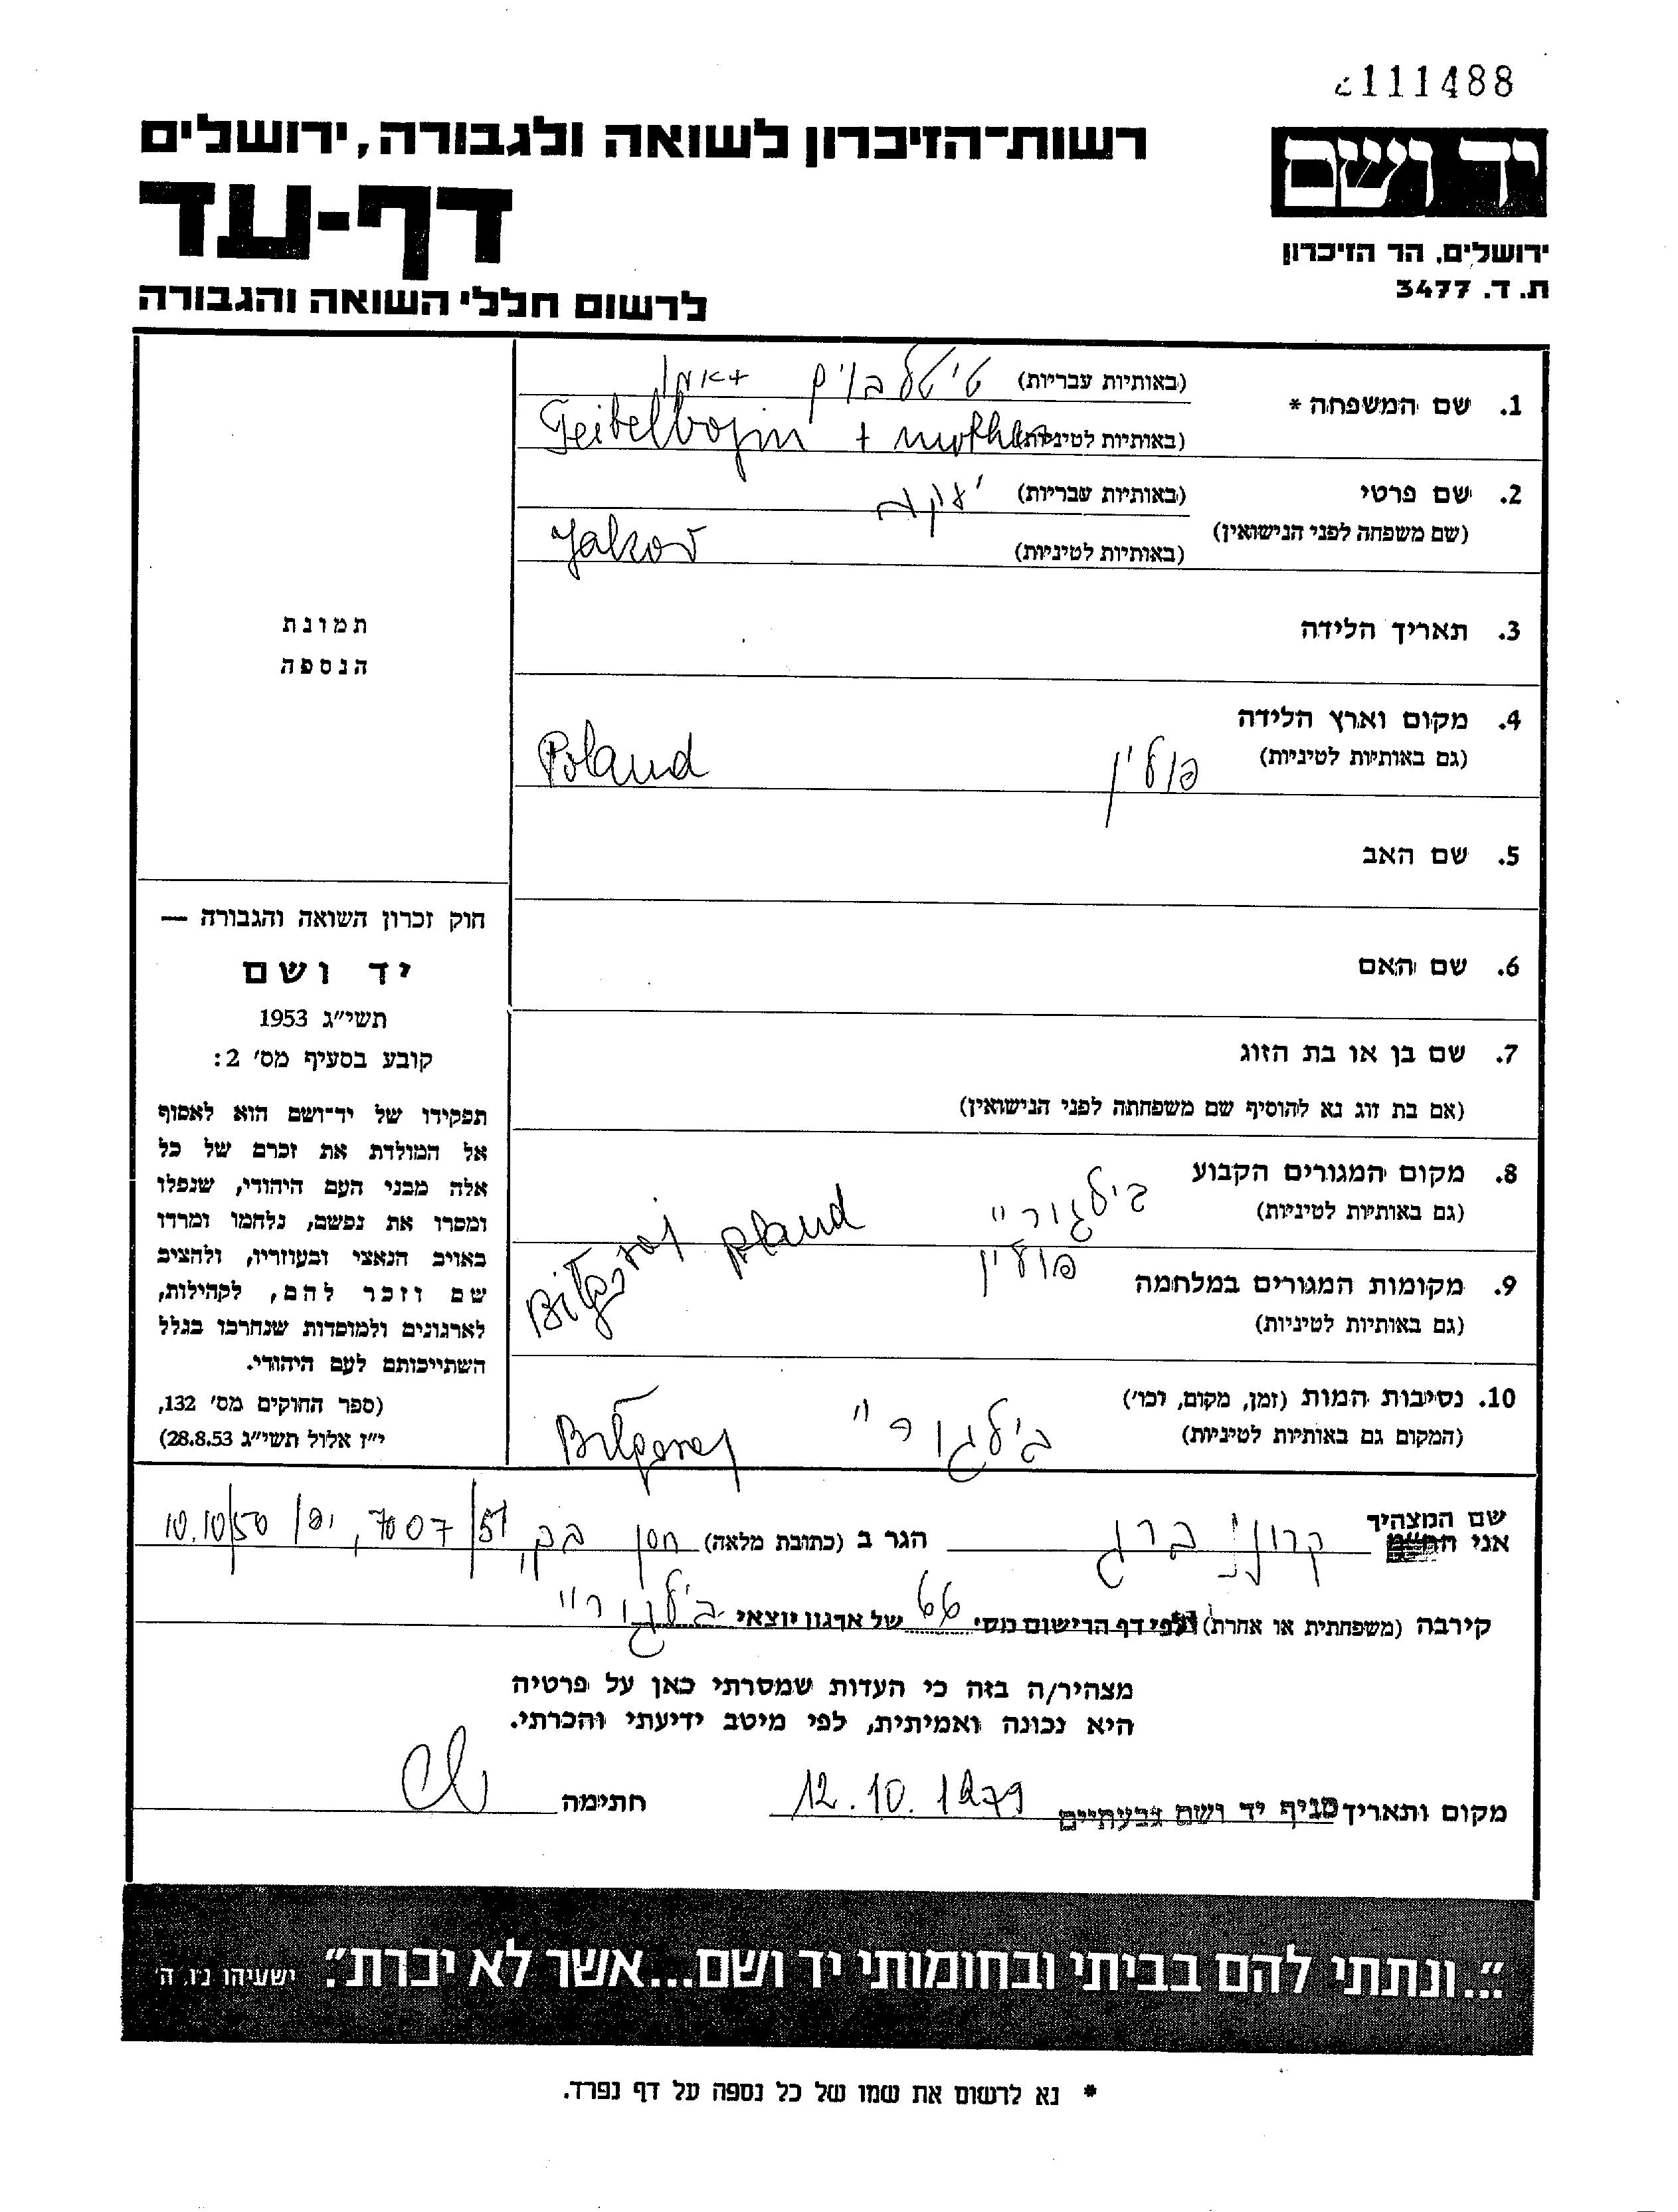 111488
יד ושם
ירושלים, הר הזיכרון
ת. ד. 3477
רשות־הזיכרון לשואה ולגבורה, ירושלים
דף-עד
לרשום חללי השואה והגבורה
1. שם המשפחה *
(באותיות עבריות) טיטלבוים + אמו
(באותיות לטיניות) Teitelbojm + mother
2. שם פרטי
(שם משפחה לפני הנישואין)
(באותיות עבריות) יעקב
(באותיות לטיניות) Jakov
3. תאריך הלידה
4. מקום וארץ הלידה
(גם באותיות לטיניות)
פולין Poland
5. שם האב
6. שם האם
7. שם בן או בת הזוג
(אם בת זוג נא להוסיף שם משפחתה לפני הנישואין)
8. מקום המגורים הקבוע
(גם באותיות לטיניות)
בילגוריי
פולין
Bilgoraj Poland
9. מקומות המגורים במלחמה
(גם באותיות לטיניות)
10. נסיבות המות (זמן, מקום, וכו')
(המקום גם באותיות לטיניות)
בילגוריי Bilgoraj
תמונת
הנספה
חוק זכרון השואה והגבורה —
יד ושם
תשי״ג 1953
קובע בסעיף מס׳ 2:
תפקידו של יד־ושם הוא לאסוף
אל המולדת את זכרם של כל
אלה מבני העם היהודי, שנפלו
ומסרו את נפשם, נלחמו ומרדו
באויב הנאצי ובעוזריו, ולהציב
שם וזכר להם, לקהילות,
לארגונים ולמוסדות שנחרבו בגלל
השתייכותם לעם היהודי.
(ספר החוקים מס׳ 132,
י״ז אלול תשי״ג 28.8.53)
שם המצהיר
אני הח״מ קרונברג הגר ב (כתובת מלאה)
קירבה (משפחתית או אחרת) לפי דף הרישום מס׳ 66 של ארגון יוצאי בילגוריי
מצהיר/ה בזה כי העדות שמסרתי כאן על פרטיה
היא נכונה ואמיתית, לפי מיטב ידיעתי והכרתי.
מקום ותאריך סניף יד ושם גבעתיים 12.10.1979 חתימה
״...ונתתי להם בביתי ובחומותי יד ושם...אשר לא יכרת״. ישעיהו נ״ו, ה׳
* נא לרשום את שמו של כל נספה על דף נפרד.